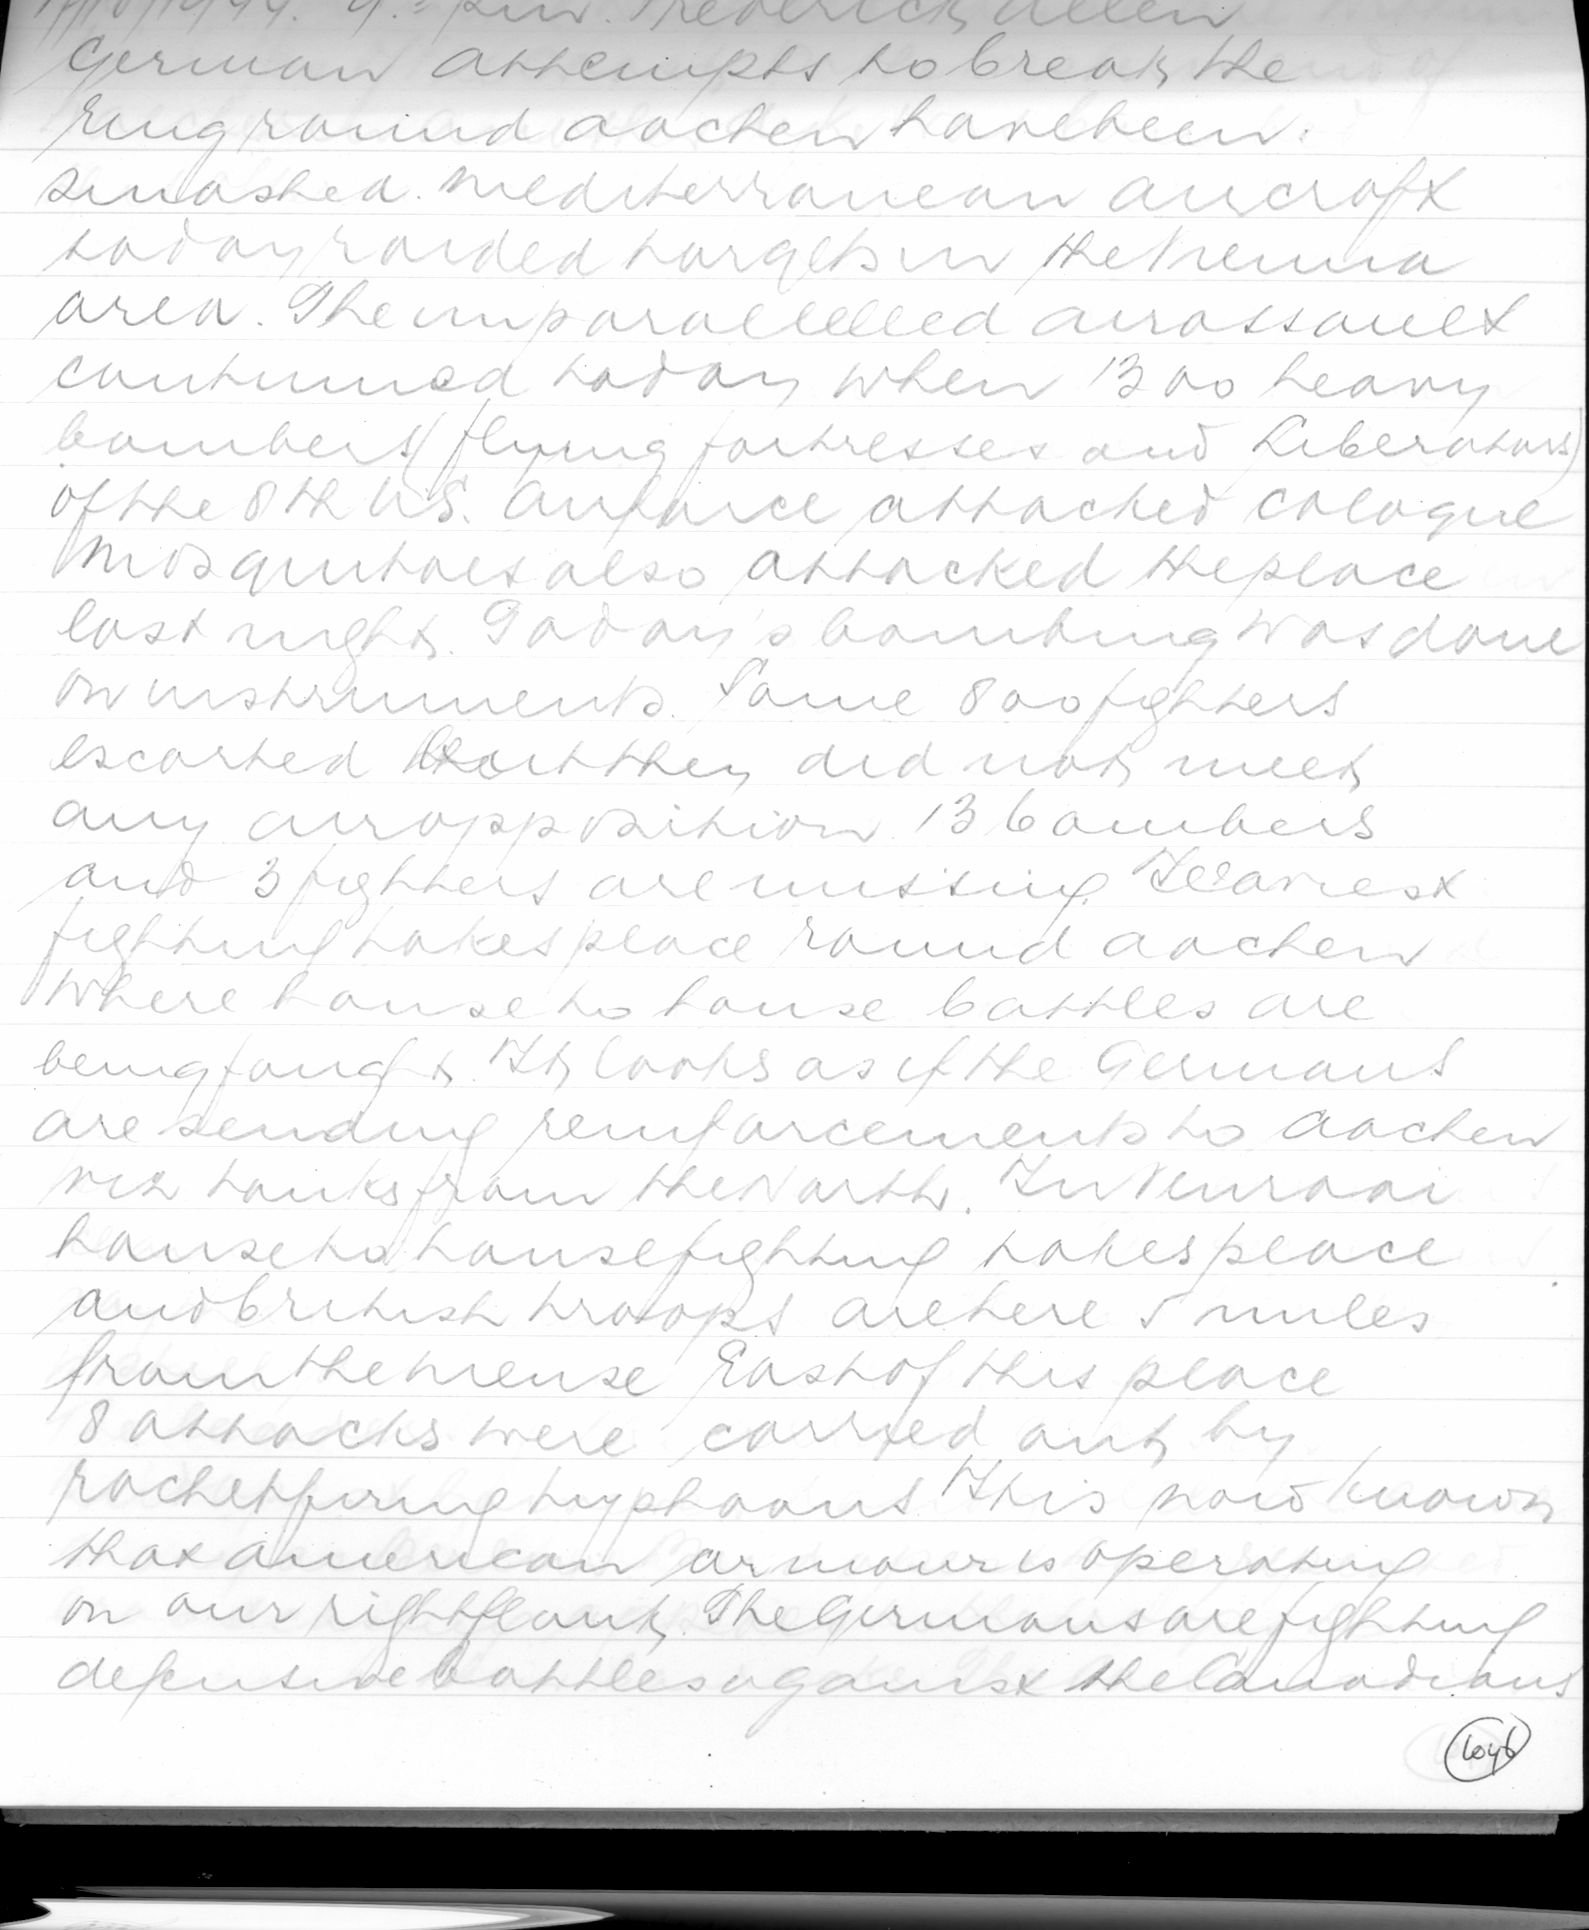 17/10/1944. 9.= p.m. Frederick Allen
German attempts to break the
ring round Aachen have been
smashed. Mediterranean aircraft
today raided targets in the Vienna
area. The unparallelled air assault
continued today when 1300 heavy
bombers (flying fortresses and Liberators)
of the 8th U.S. Airforce attacked Cologne
Mosquitoes also attacked the place
last night. Today's bombing was done
on instruments. Some 800 fighters
escorted but they did not meet
any air opposition. 13 bombers
and 3 fighters are missing. Heaviest
fighting takes place round Aachen
where house to house battles are
being fought. It looks as if the Germans
are sending reinforcements to Aachen
viz tanks from the North. In Venraai
house to house fighting takes place
and British troops are here 5 miles
from the Meuse East of this place
8 attacks were carried out by
rocket firing typhoons It is now known
that American armour is operating
on our right flank. The Germans are fighting
defensive battles against the Canadians